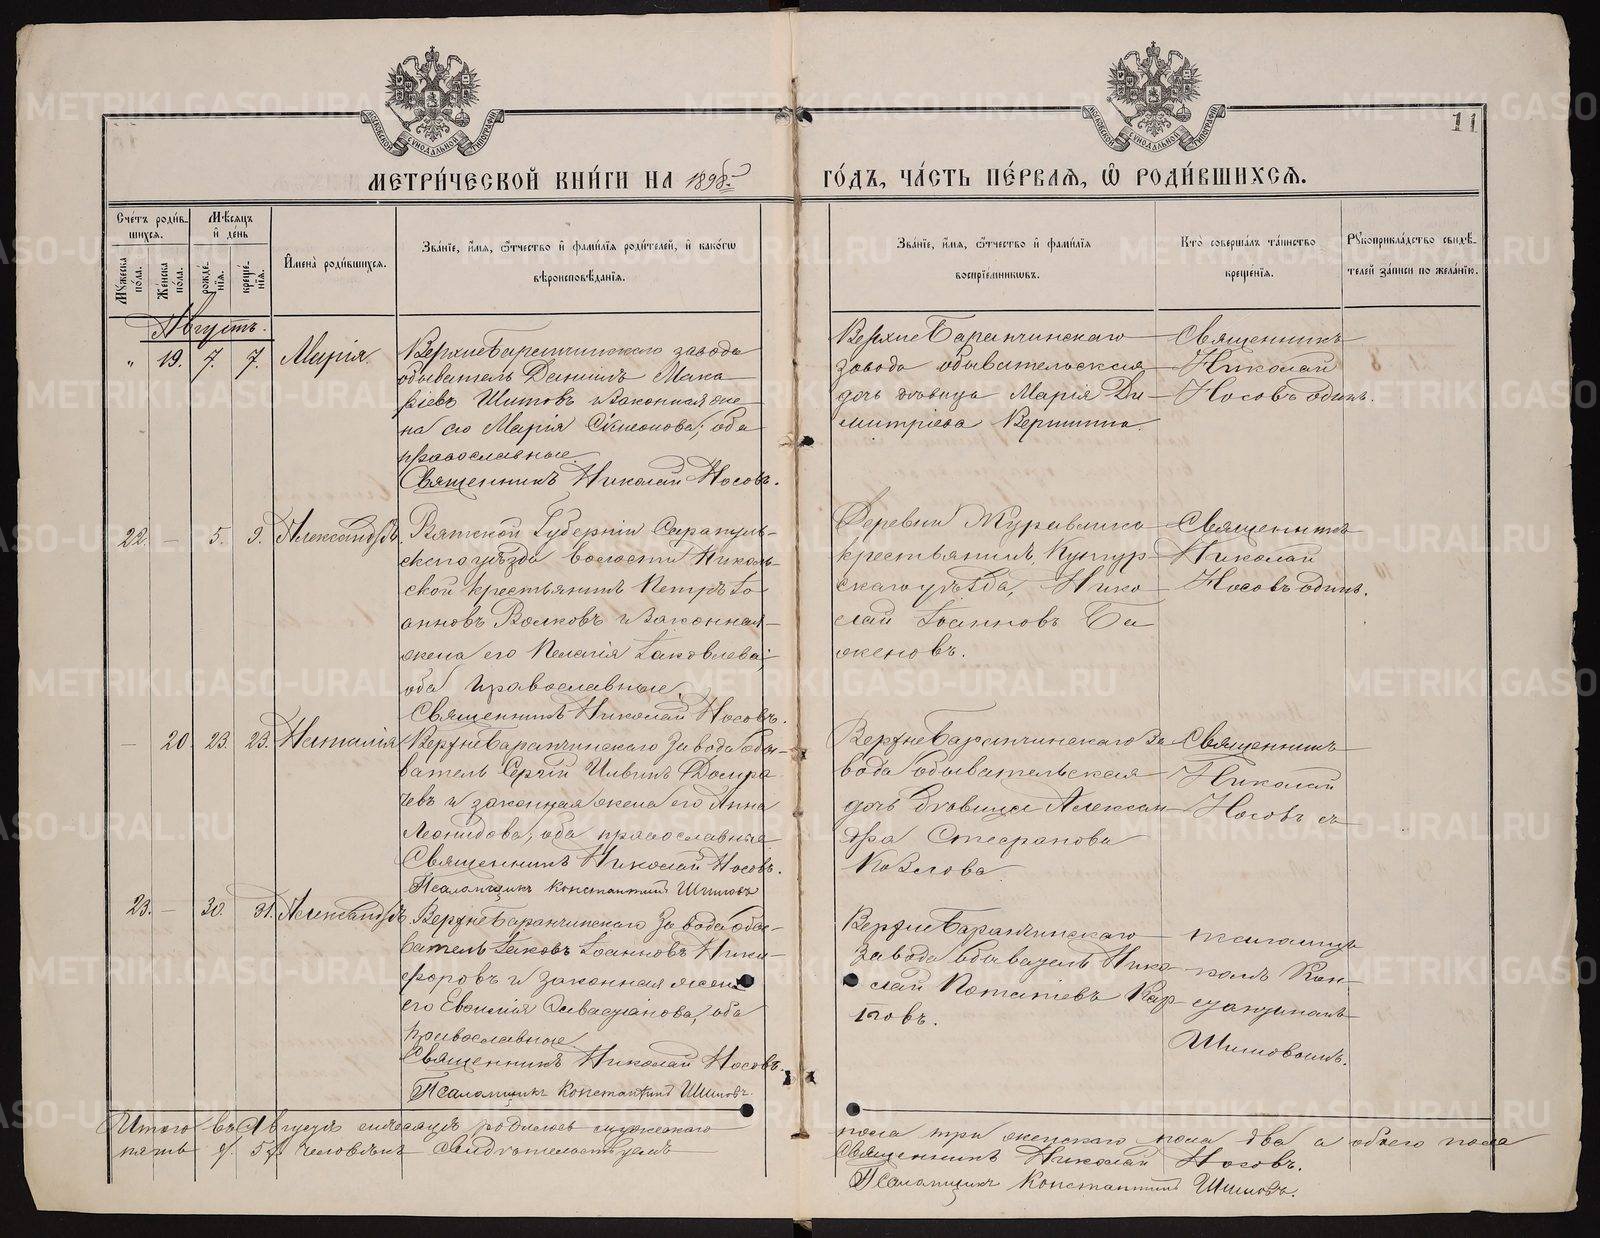 11
МЕТРИ́ЧЕСКОЙ КНИ́ГИ НА 1898 ГО́ДЪ, ЧА́СТЬ ПЕ́РВАЯ, Ѡ҆ РОДИ́ВШИХСЯ.
Сче́тъ роди́вшихся.
Му́жеска по́ла.
Же́нска по́ла.
Мѣ́сяцъ и҆ де́нь
рожде́нїѧ.
креще́нїѧ.
И҆мена̀ роди́вшихсѧ.
Зва́нїе, и҆́мѧ, ѻ҆́тчество и҆ фами́лїѧ роди́телей, и҆ како́гѡ вѣроисповѣ́данїѧ.
Зва́нїе, и҆́мѧ, ѻ҆́тчество и҆ фами́лїѧ воспрїе́мникѡвъ.
Кто̀ соверша́лъ та́инство креще́нїѧ.
Рꙋкоприкла́дство свидѣ́телей за́писи по жела́нїю.
Августъ.
„ 19. 7. 7. Марія.
Верхнебаранчинскаго завода
обыватель Даніилъ Мака
ріевъ Шитовъ и законная же
на его Марія Сімеонова; оба
православные.
Священникъ Николай Носовъ.
Верхне Баранчинскаго
завода обывательская
дочь дѣвица Марія Ди
митріева Вершинина.
Священникъ
Николай
Носовъ одинъ.
22. — 5. 9. Александръ.
Вятской Губерніи Сарапуль-
скаго уѣзда волости Николь-
ской крестьянинъ Петръ Іо
анновъ Волковъ и законная
жена его Пелагія Іаковлева;
оба православные.
Священникъ Николай Носовъ.
Деревни Журавлика
крестьянинъ, Кунгур-
скаго уѣзда, Нико
лай Іоанновъ Ба
женовъ.
Священникъ
Николай
Носовъ одинъ.
— 20. 23. 23. Наталія
Верхнебаранчинскаго завода обы-
ватель Сергій Ильинъ
чевъ и законная жена его Анна
Леонидова; оба православные
Священникъ Николай Носовъ.
Псаломщикъ Константинъ Шишовъ
Верхне Баранчинскаго за
вода обывательская
дочь дѣвица Алексан
дра Стефанова
Козлова
Священникъ
Николай
Носовъ съ
23. — 30. 31. Александръ
Верхнебаранчинскаго завода обы-
ватель Іаковъ Іоанновъ Ники-
форовъ и законная жена
его Евѳимія Севастіанова, оба
православные.
Священникъ Николай Носовъ.
Псаломщикъ Константинъ Шишовъ.
Верхне Баранчинскаго
завода обыватель Нико
лай Потапіевъ Кар
повъ.
псаломщи
комъ Кон-
стантиномъ
Шишовымъ.
Итого въ Августѣ мѣсяцѣ родилось мужескаго пола три женскаго пола два а обоего пола
пять /5/ человѣкъ
Священникъ Николай Носовъ.
Псаломщикъ Константинъ Шишовъ.
METRIKI.GASO-URAL.RU